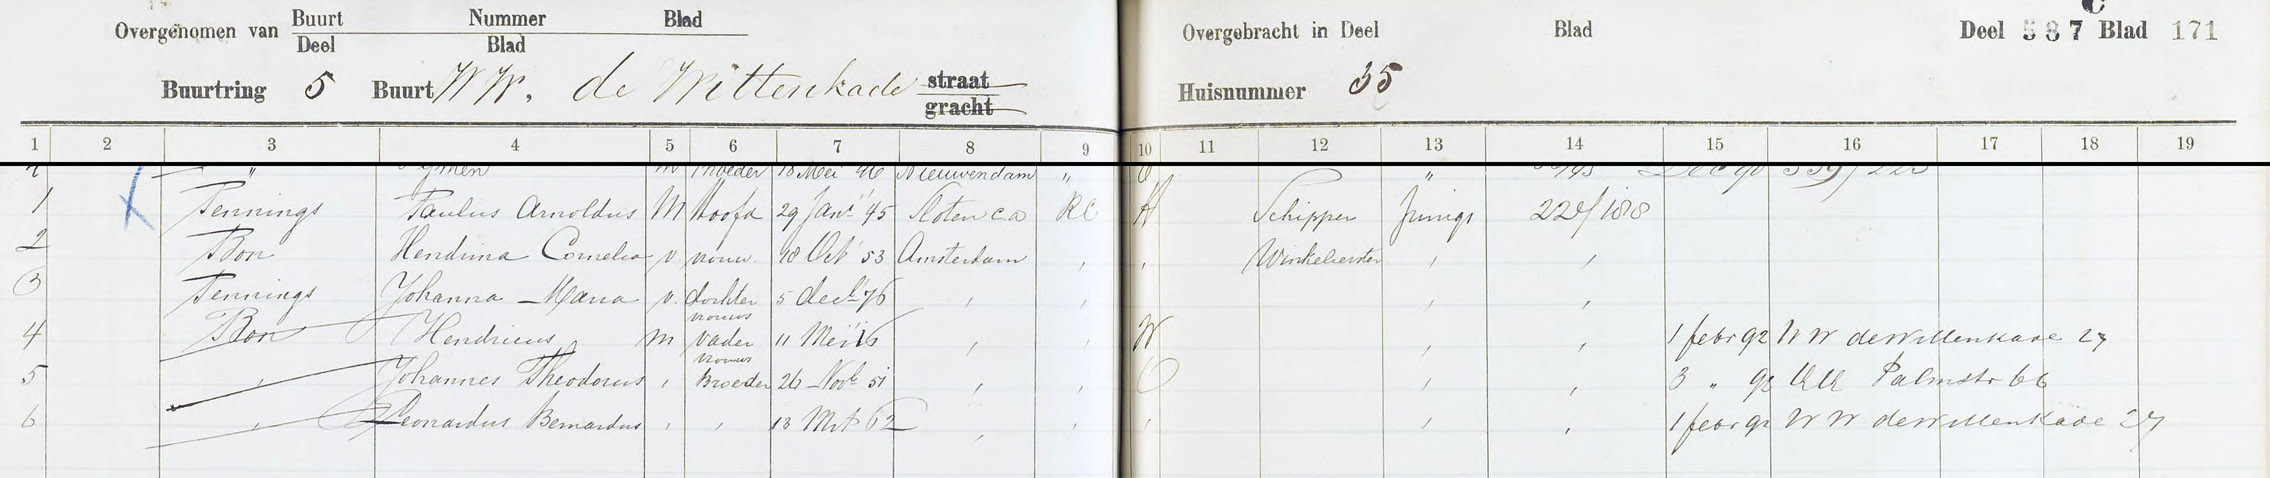 Overgenomen van Buurt Nummer Blad
Deel Blad
Buurtring 5 Buurt WW. de Wittenkade straat
gracht
Overgebracht in Deel Blad Deel 587 C Blad 171
Huisnummer 35
1 2 3 4 5 6 7 8 9 10 11 12 13 14 15 16 17 18 19
" Symen m broeder 18 Mei 46 Nieuwendam " O "
1 Pennings Paulus Arnoldus M Hoofd 29 Jan 45 Sloten c.a RC H Schipper
2 Bon Hendrina Cornelia v. vrouw. 18 Oct 53 Amsterdam , , Winkelierster , ,
3 Pennings Johanna Maria v. dochter 5 dec 76 , , , ,
4 Bon Hendricus m vrouws vader 11 Mei 16 , , W , , 1 febr 92 WW de Wittenkade 27
5 , Johannes Theodorus , vrouws broeder 26 Nov 51 , , O , , 3 " 92 Palmstr 66
6 , Leonardus Bernardus , , 13 Mrt 62 , , , , , 1 febr 92 WW de Wittenkade 27